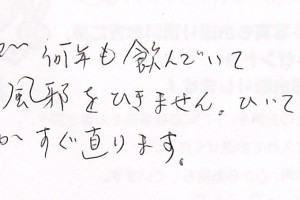 何年も飲んでいて
風邪をひきません。ひいて
すぐ直ります。